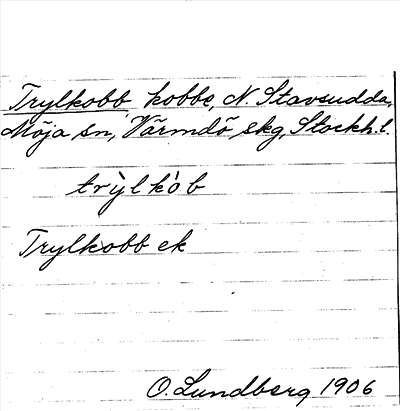 Trylkobb kobbe, N. Stavsudda,
Möja sn, Värmdö skg, Stockh. l.
trỳlkȯ̀b
Trylkobb ek
O. Lundberg 1906